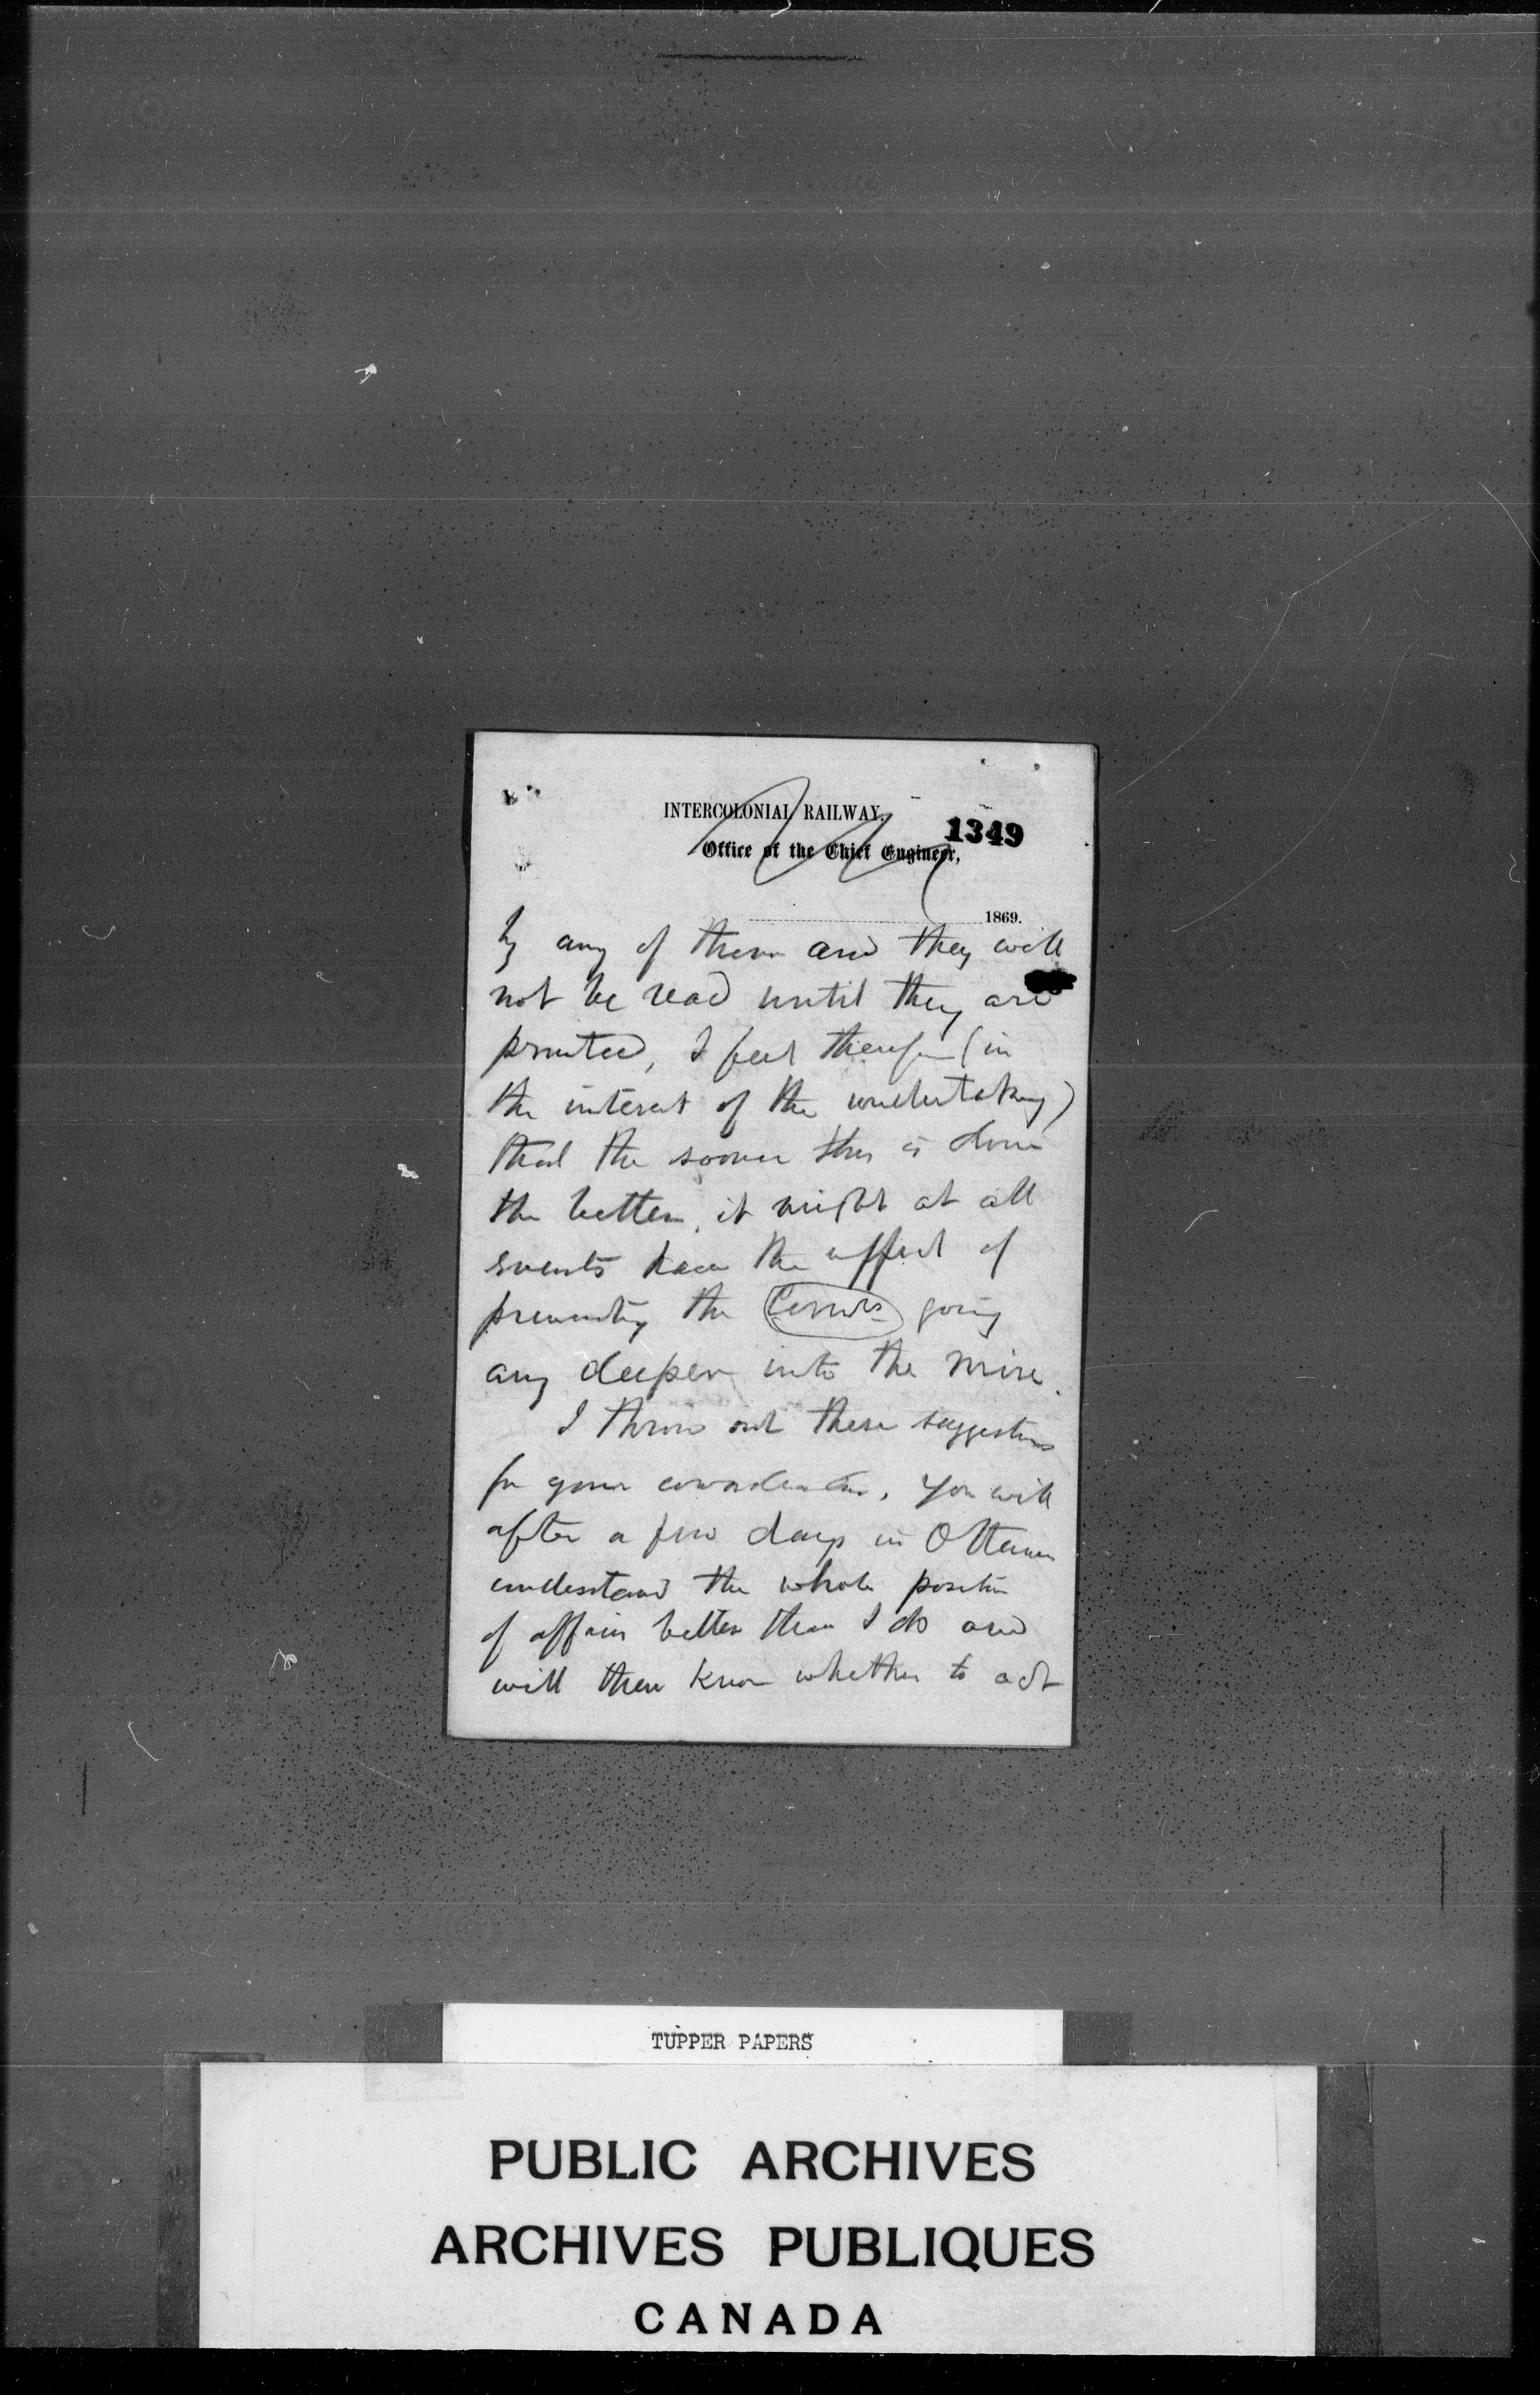 INTERCOLONIAL RAILWAY,
1349
Office of the Chief Engineer,
1869.
by any of them and they will
not be read until they are
printed, I feel therefore (in
the interest of the undertaking)
that the sooner this is done
the better, it might at all
events have the effect of
preventing the Comrs going
any deeper into the mire.
I throw out these suggestions
for your consideration, You will
after a few days in Ottawa
understand the whole position
of affairs better than I do and
will then know whether to act
TUPPER PAPERS
PUBLIC ARCHIVES
ARCHIVES PUBLIQUES
CANADA